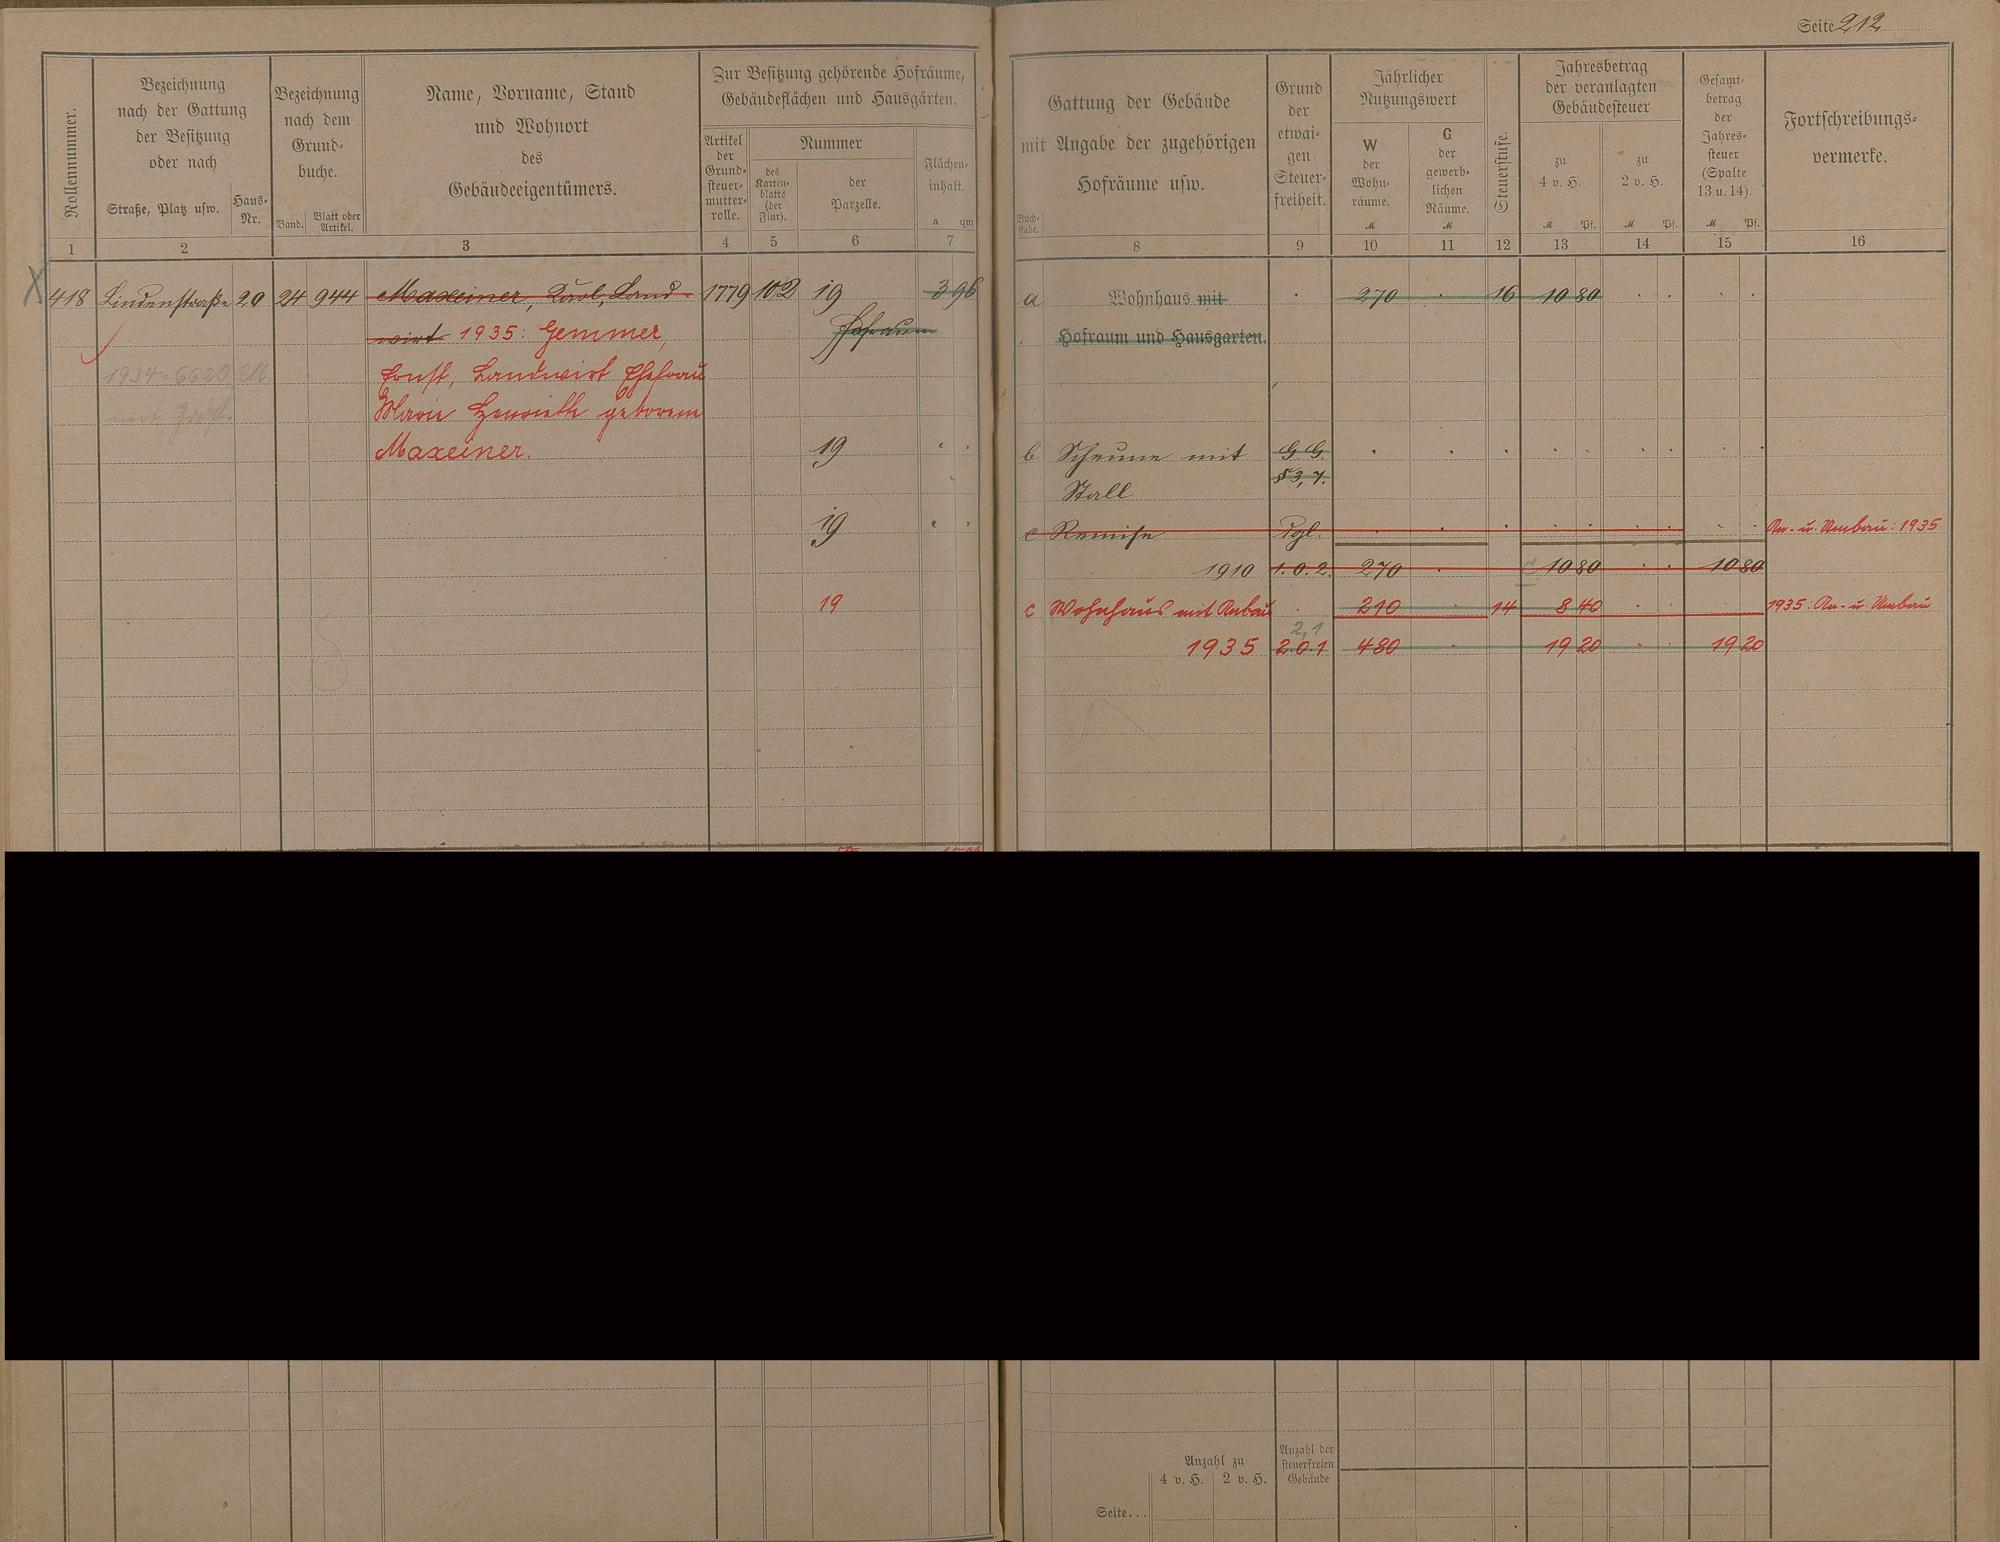 Seite 212
Rollennummer.
Bezeichnung
nach der Gattung
der Besitzung
oder nach
Straße, Platz usw.
Haus-
Nr.
Bezeichnung
nach dem
Grund-
buche.
Band.
Blatt oder
Artikel.
Name, Vorname, Stand
und Wohnort
des
Gebäudeeigentümers.
Zur Besitzung gehörende Hofräume,
Gebäudeflächen und Hausgärten.
Artikel
der
Grund-
steuer-
mutter-
rolle.
Nummer
des
Karten-
blatts
(der
Flur).
der
Parzelle.
Flächen-
inhalt.
a qm
Buch-
stabe.
Gattung der Gebäude
mit Angabe der zugehörigen
Hofräume usw.
Grund
der
etwai-
gen
Steuer-
freiheit.
Jährlicher
Nutzungswert
W
der
Wohn-
räume.
M
G
der
gewerb-
lichen
Räume.
M
Steuerstufe.
Jahresbetrag
der veranlagten
Gebäudesteuer
zu
4 v. H.
M Pf.
zu
2 v. H.
M Pf.
Gesamt-
betrag
der
Jahres-
steuer
(Spalte
13 u. 14).
M Pf.
Fortschreibungs-
vermerke.
1 2 3 4 5 6 7 8 9 10 11 12 13 14 15 16
418 Lindenstraße 20 24 944 Maxeiner, Karl, Land- 1779 102 19 3 96 a Wohnhaus mit 270 16 10 80
wirt 1935: Gemmer, Hofraum Hofraum und Hausgarten.
1934 = 6620 M Ernst, Landwirt Ehefrau
Marie Henriette geborene
Maxeiner. 19 b Scheune mit G. G.
Stall § 3, 7.
19 c Remise Dgl. An- u. Umbau: 1935
1910 1. 0. 2. 270 10 80 10 80
19 c Wohnhaus mit Anbau 210 14 8 40 1935: An- u. Umbau
2,1
1935 2.0.1 480 19 20 19 20
Anzahl zu
4 v. H. 2 v. H.
Anzahl der
steuerfreien
Gebäude
Seite...